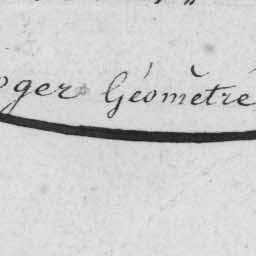 oger Géomètre